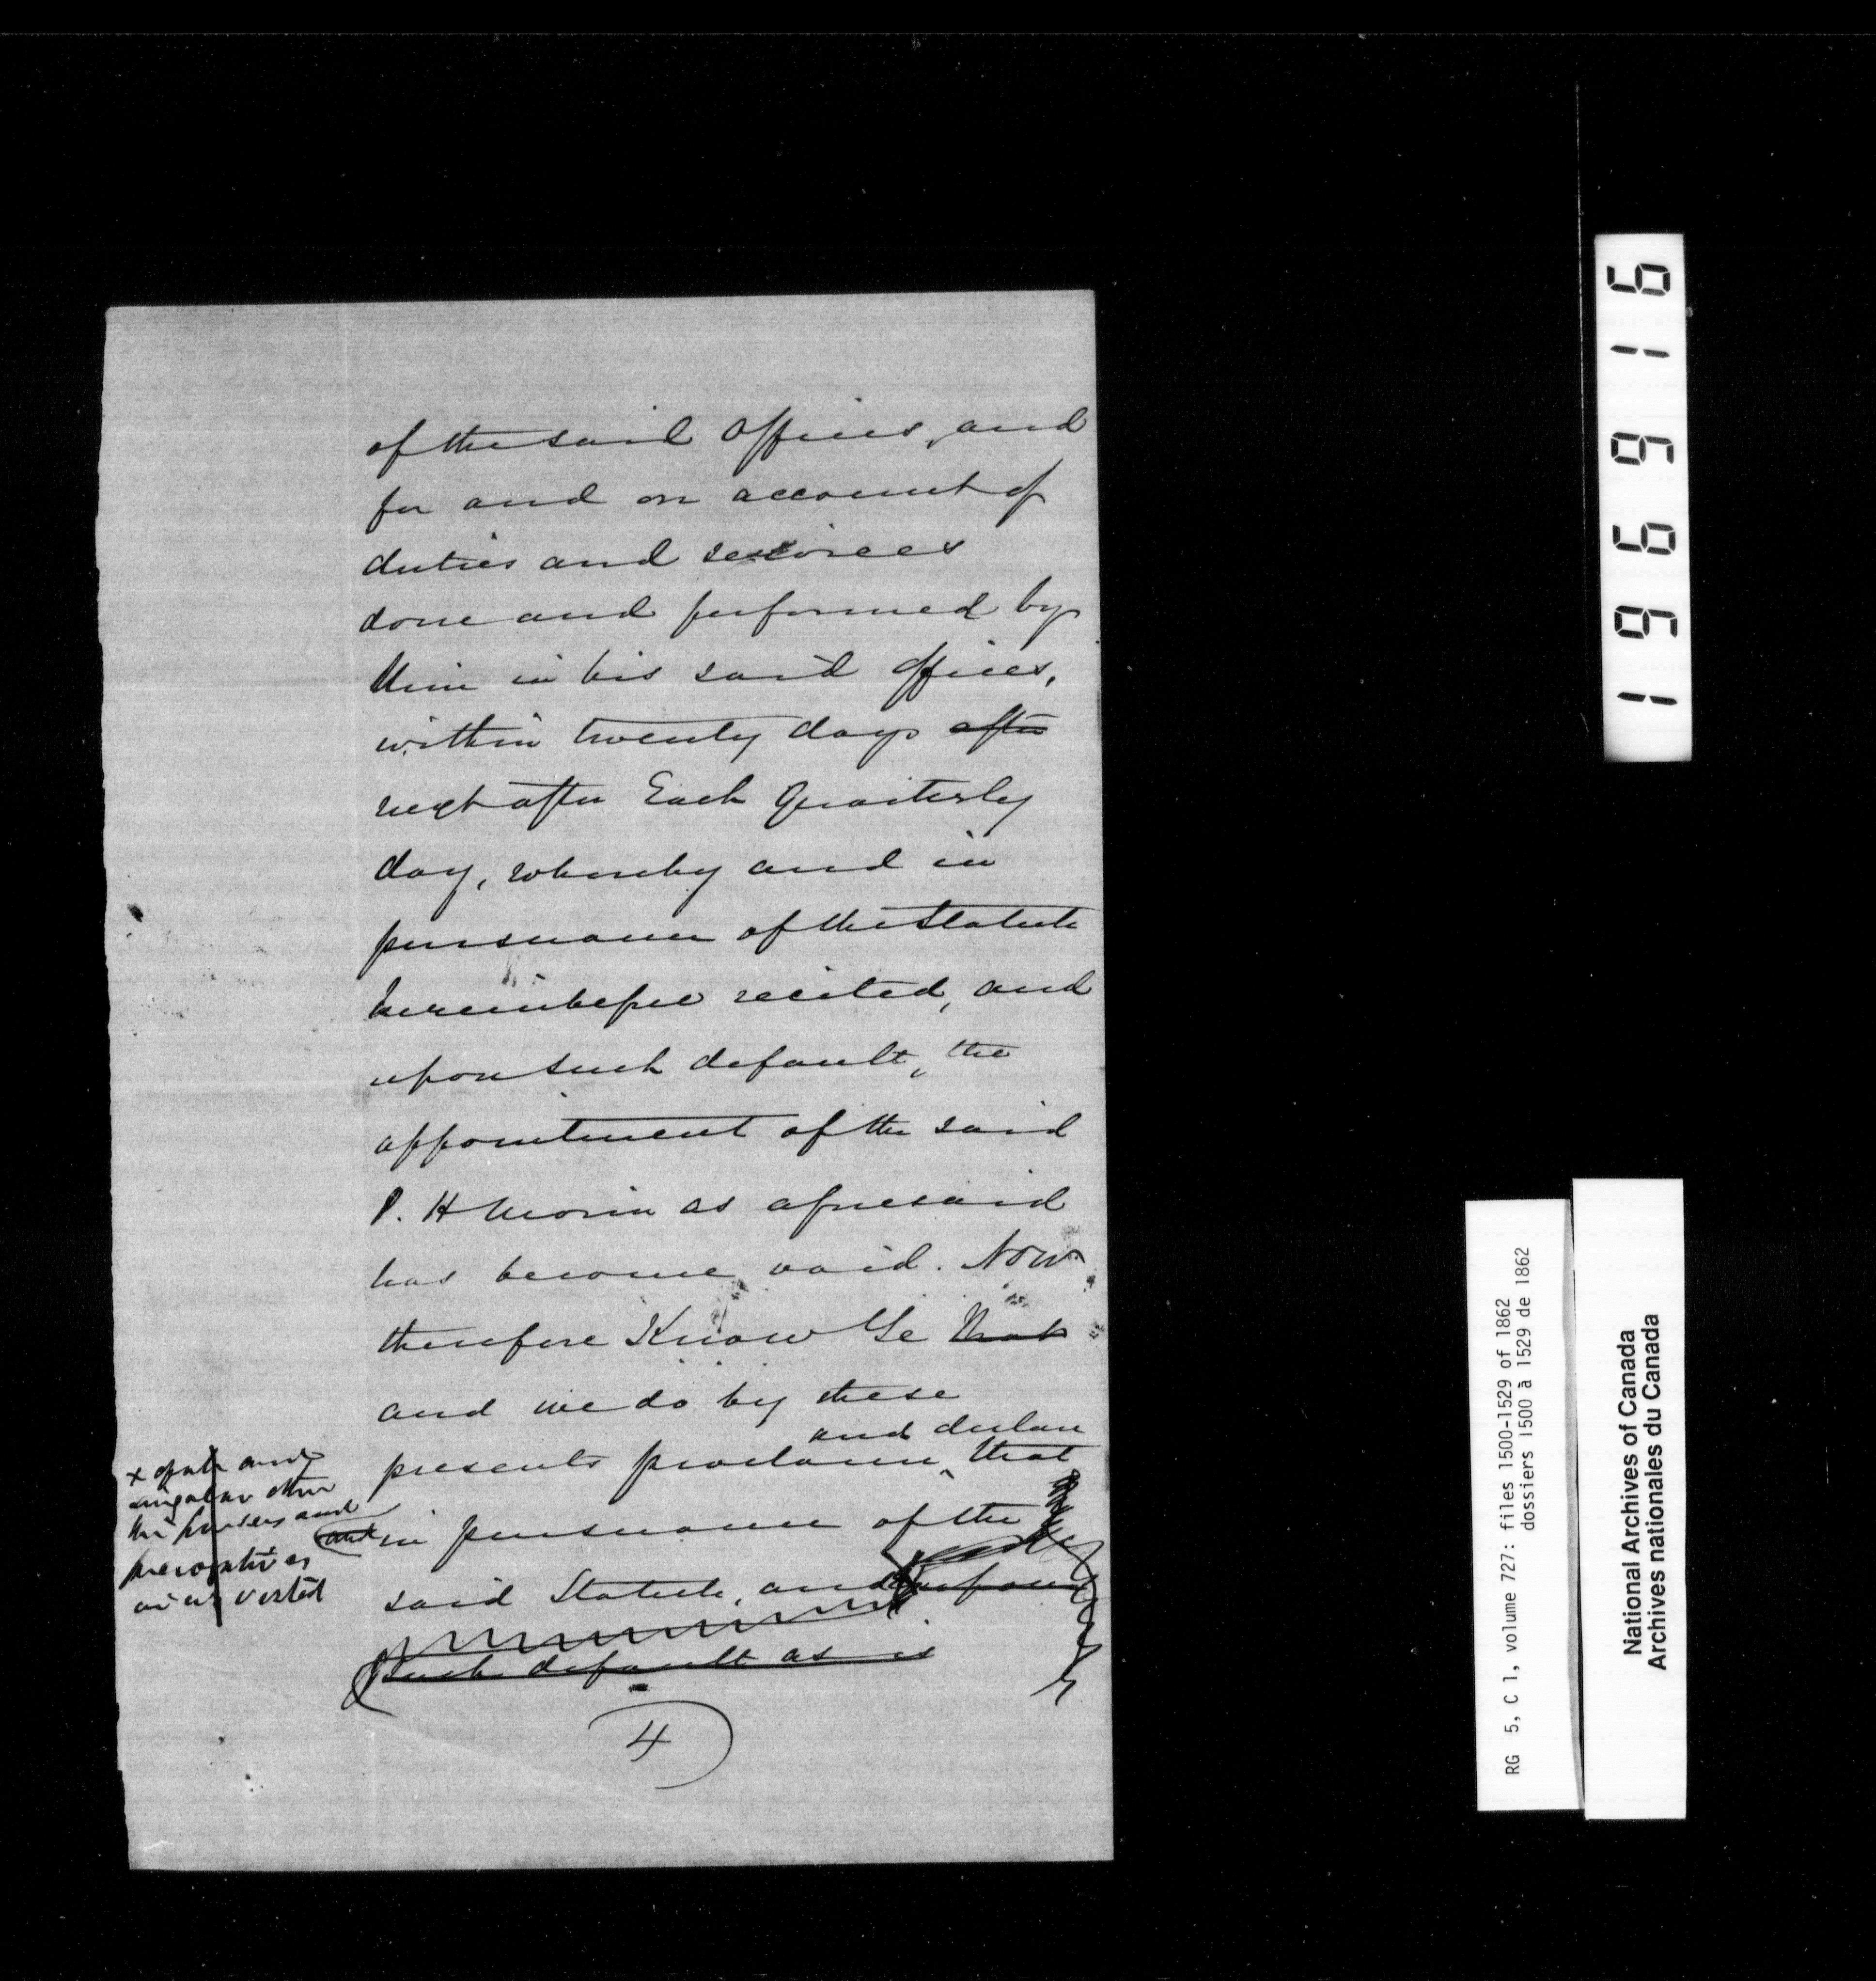 of the said offices, and
for and on account of
duties and services
done and performed by
him in his said offices,
within twenty days after
next after Each Quarterly
day, whereby and in
pursuance of the Statute
hereinbefore recited, and
upon such default, the
appointment of the said
P. H Morin as aforesaid
has become void. Now
therefore Know Ye that
and we do by these
and declare
presents proclaim that
and in pursuance of the
said Statute, and upon
such default as is
4
x of all and
singular other
the powers and
prerogatives
in us vested
196916
RG 5, C 1, volume 727: files 1500-1529 of 1862
dossiers 1500 à 1529 de 1862
National Archives of Canada
Archives nationales du Canada